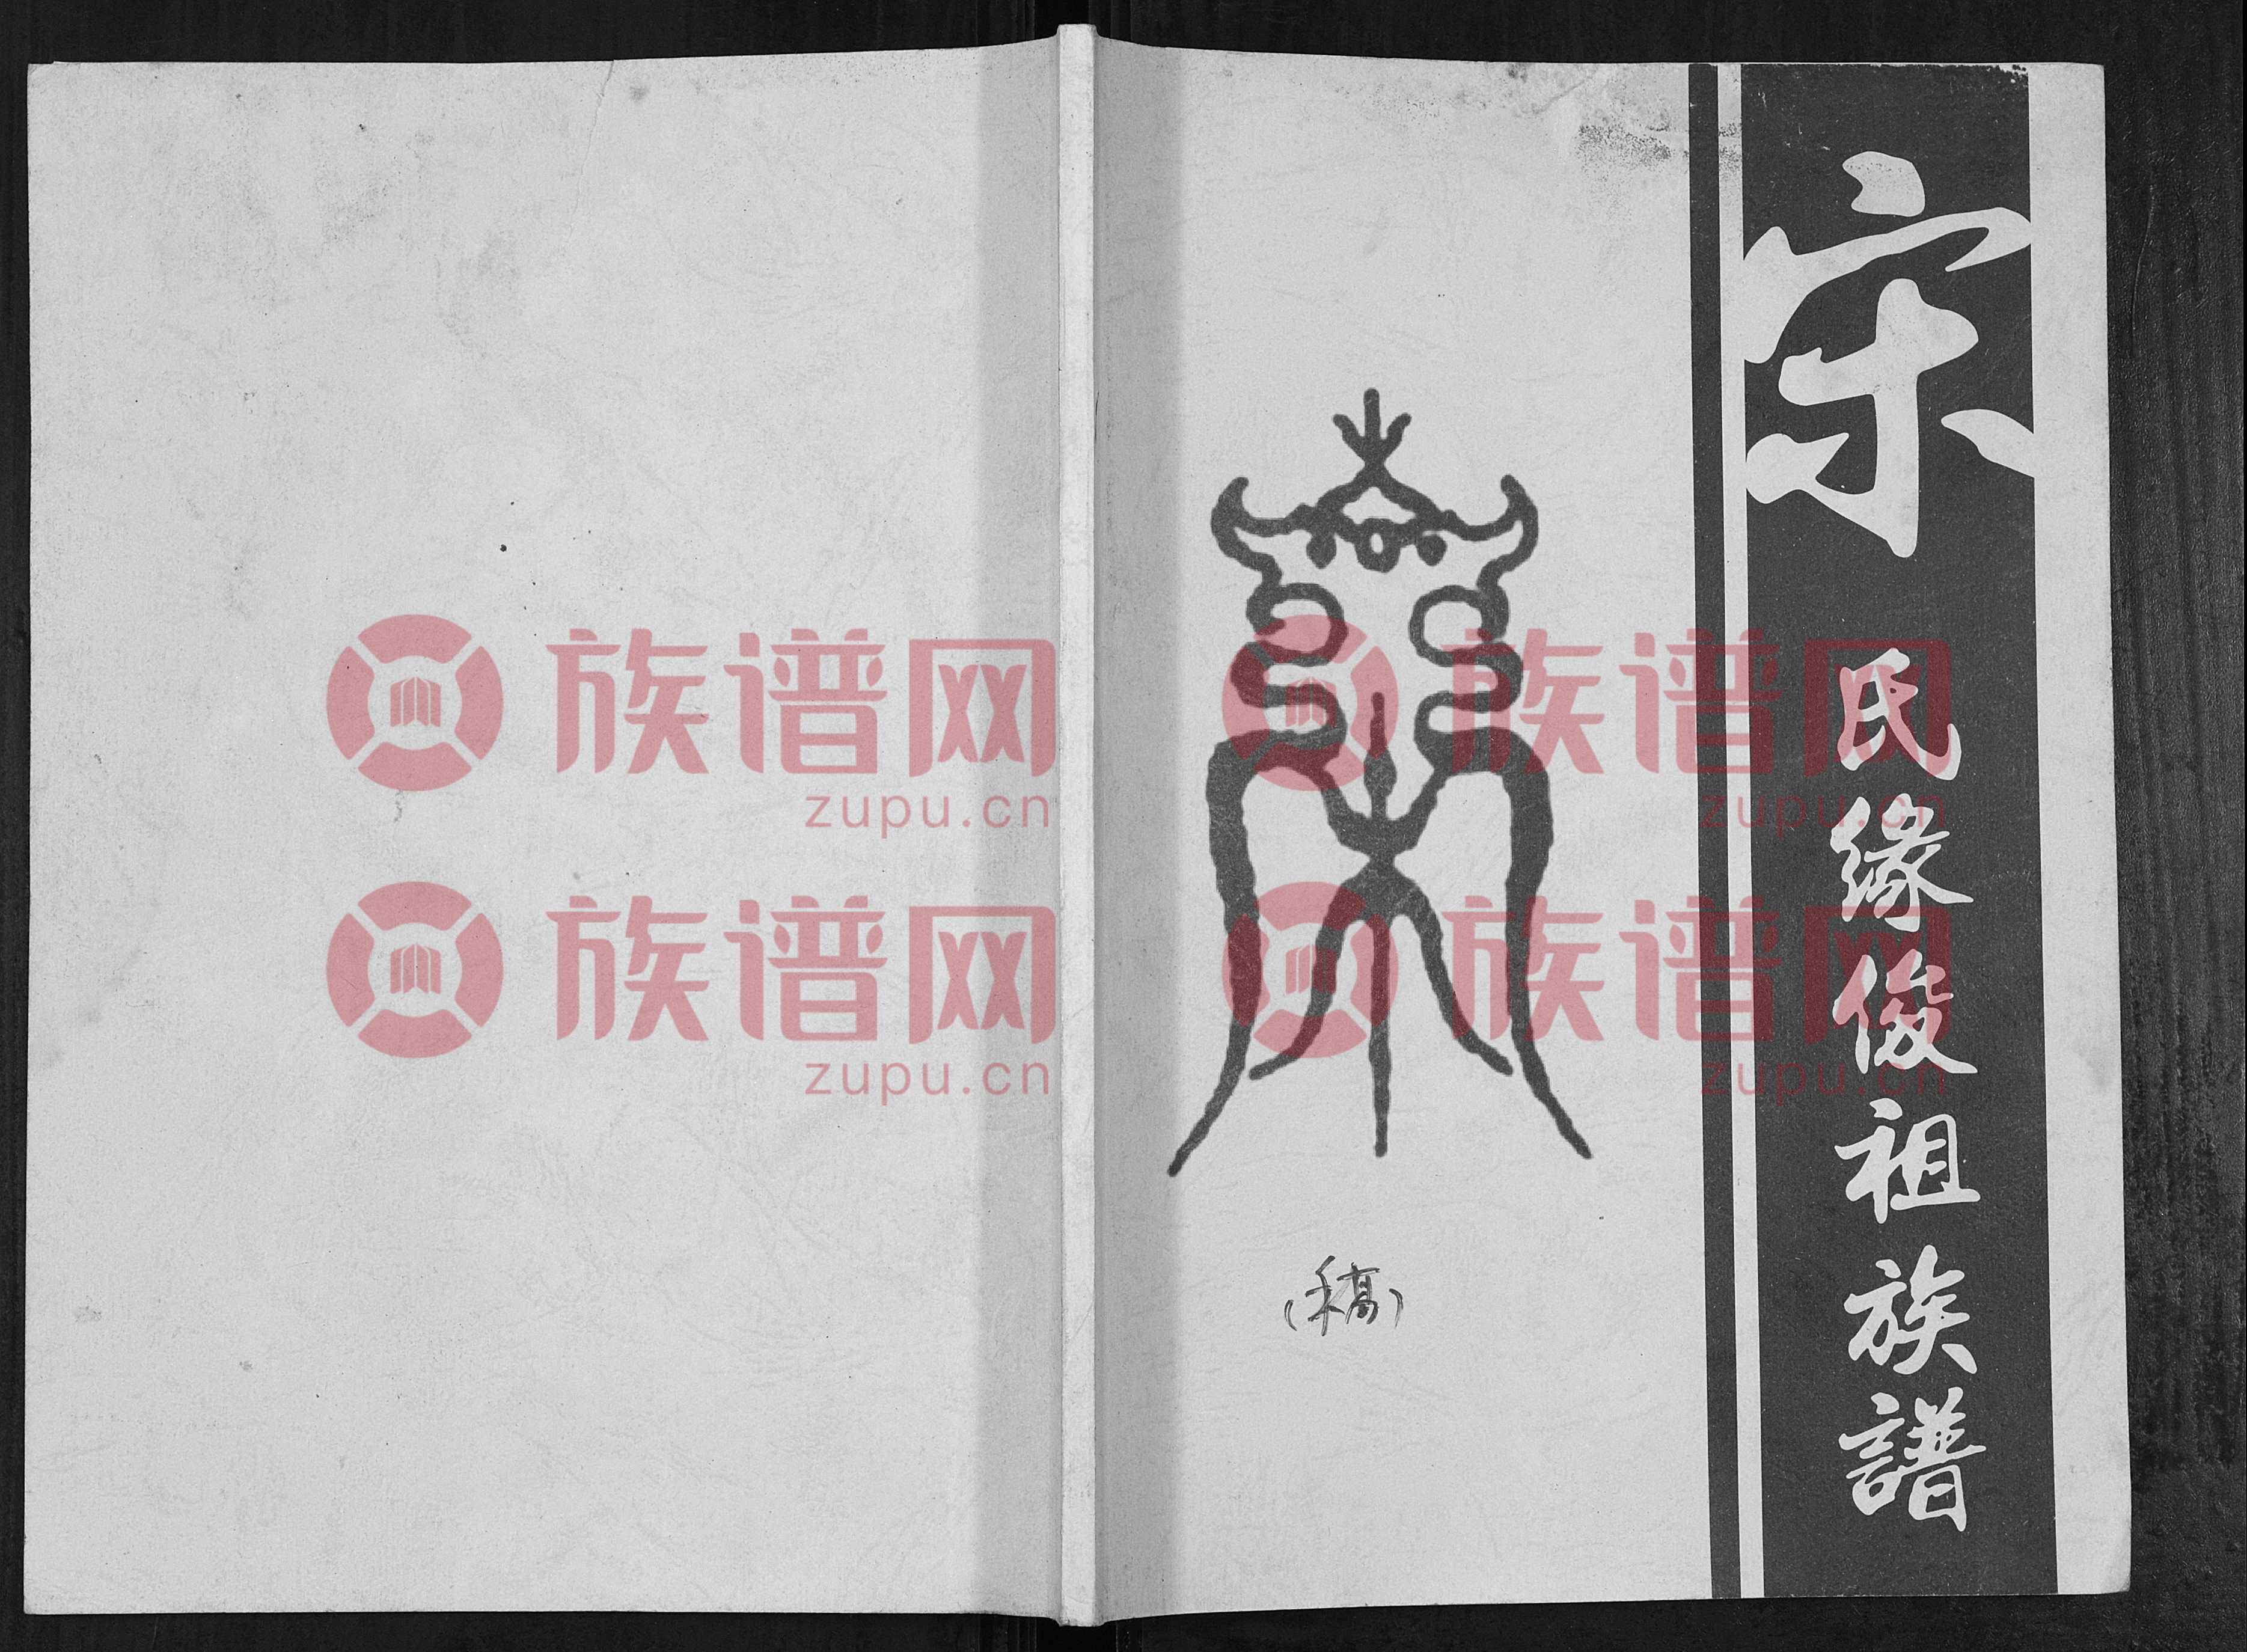 宋
氏缘俊祖族譜
（稿）
族谱网
zupu.cn
族谱网
zupu.cn
族谱网
zupu.cn
族谱网
zupu.cn